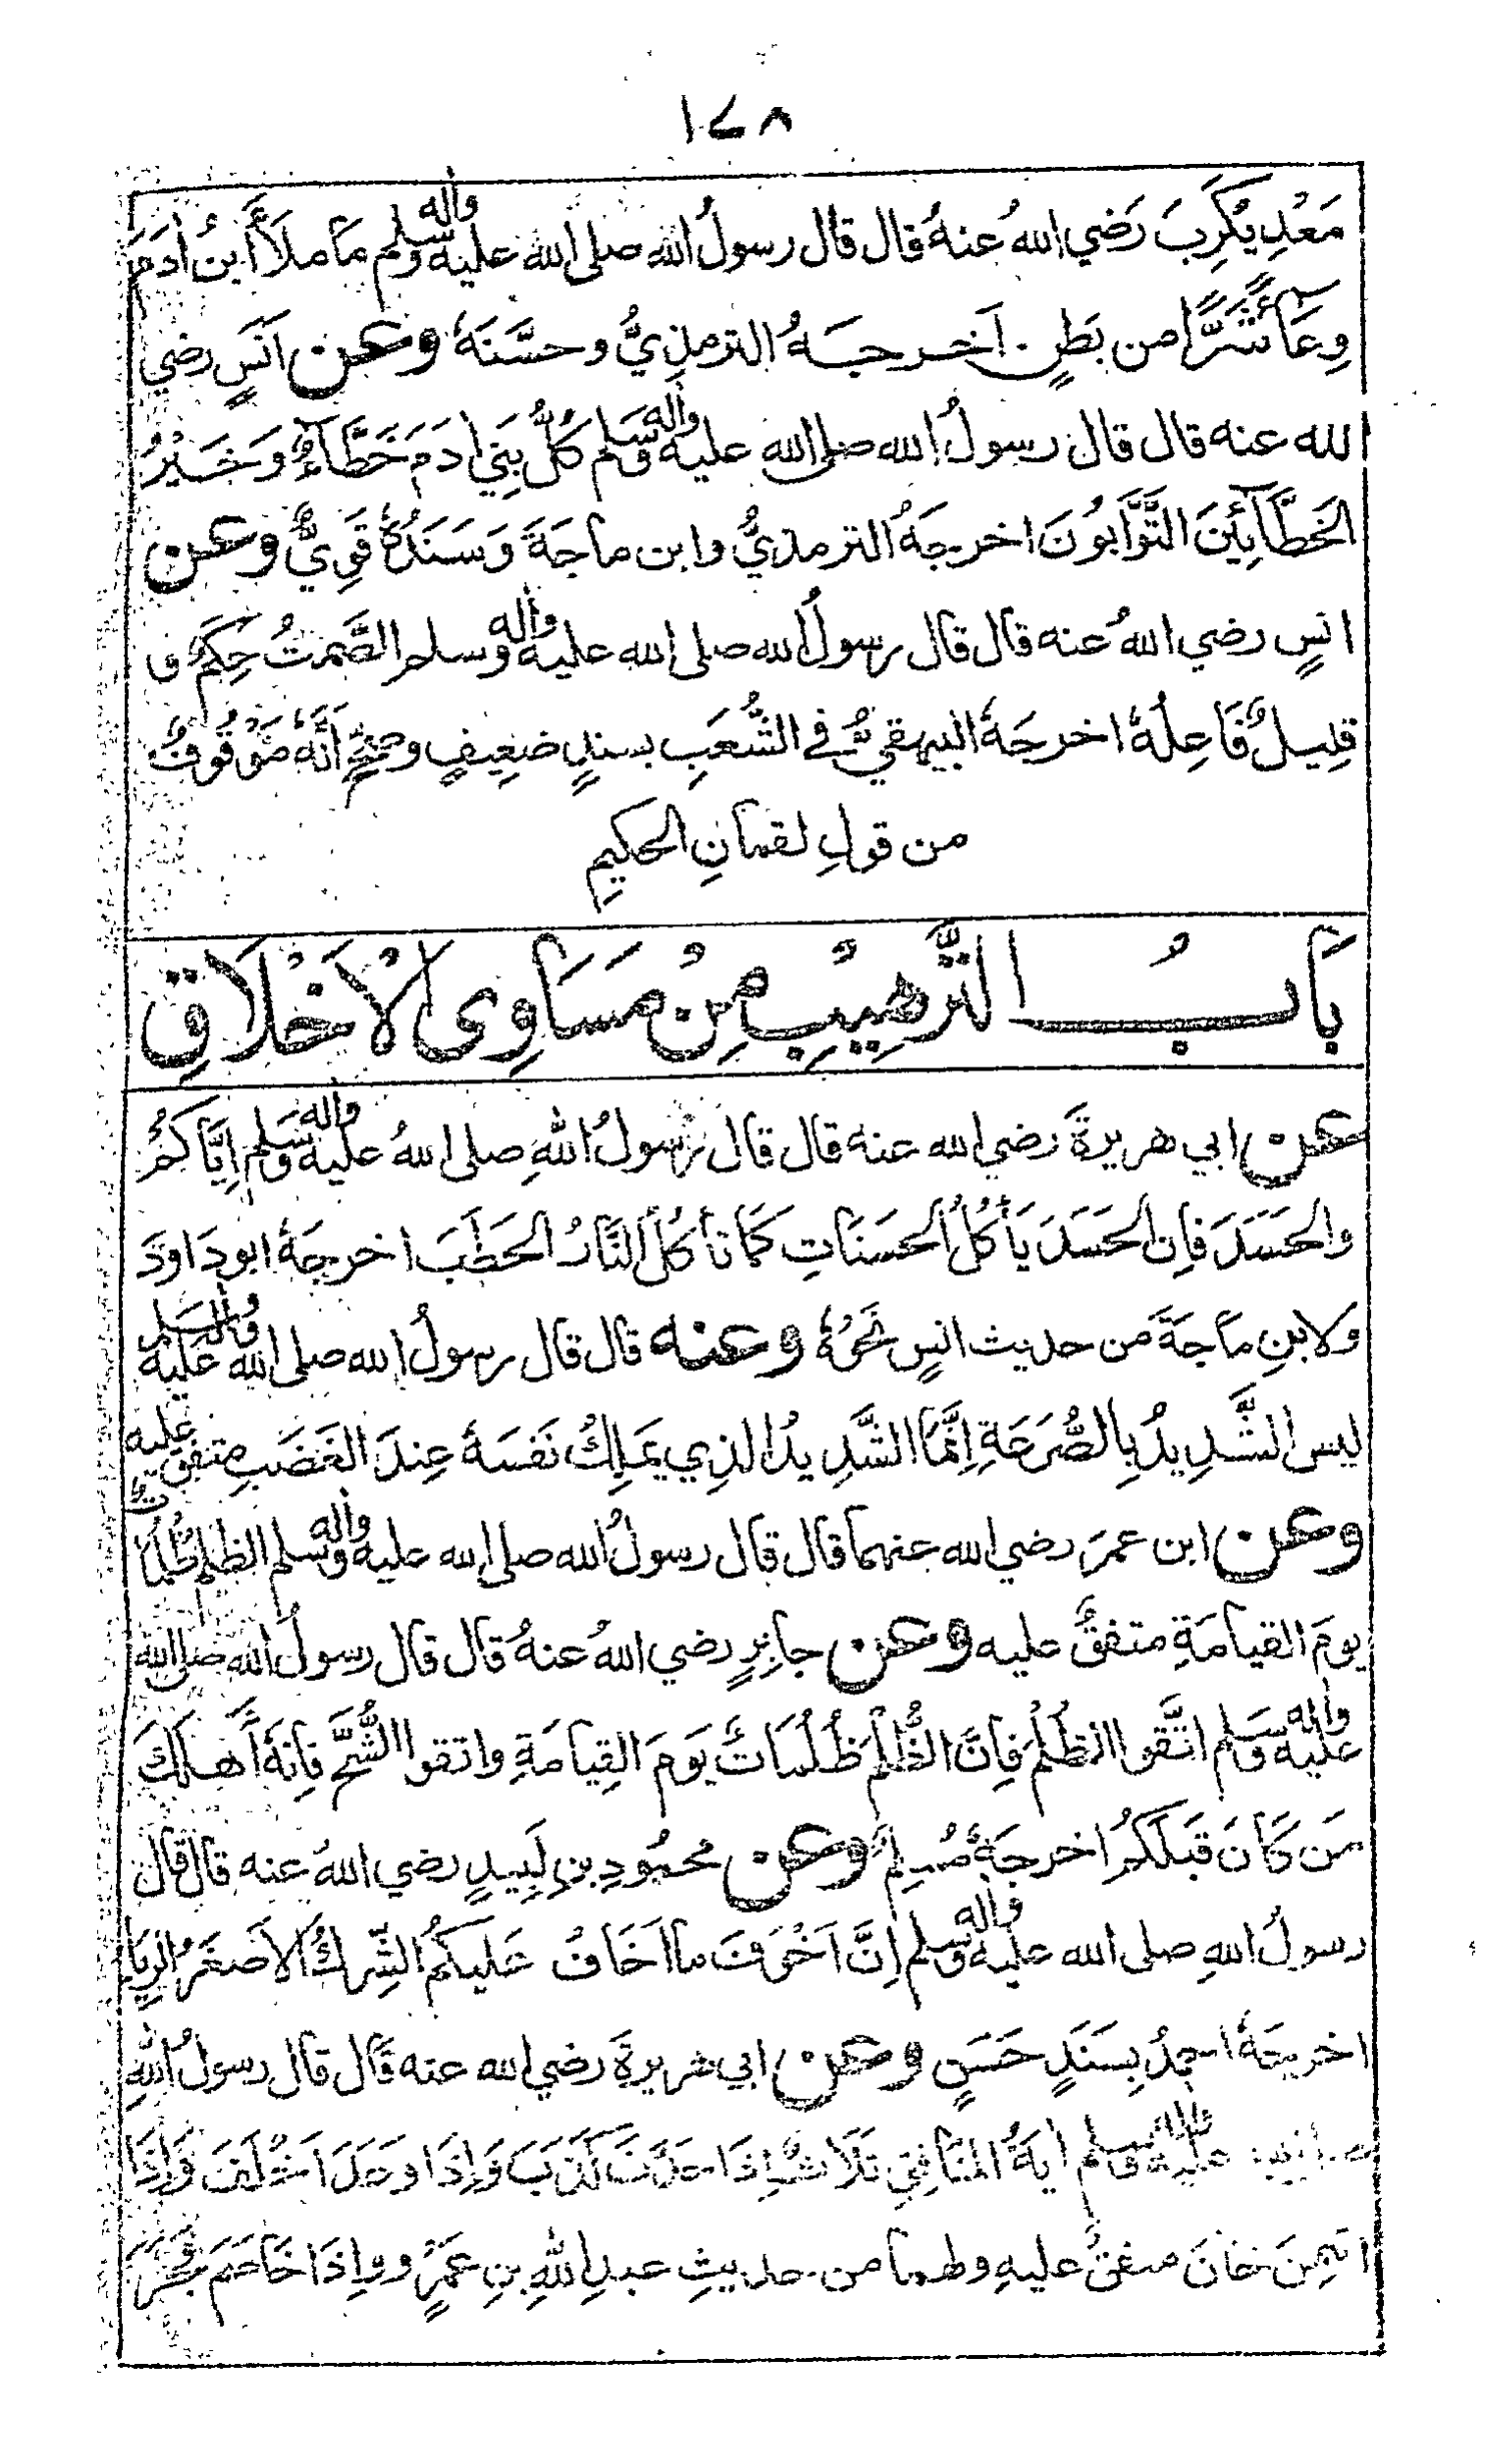 ١٤٨
مَعْدِيْكَرِبَ رَضي اللهُ عنهُ قال قال رسولُ الله صلى الله عليه واٰله وسلم مَا ملأَ ابنُ اٰدَمَ
وِعَآءً شَرًّا من بَطْنٍ اَخرجَهُ الترمذِيُّ وحسَّنَهٗ وعن انَسٍ رضي
الله عنه قال قال رسولُ الله صلى الله عليه واٰله وسلم كلُّ بَنِي اٰدَمَ خَطَّآءٌ وَخَيْرُ
الخَطَّآئِيْنَ التَّوَّابُوْنَ اخرجَهُ الترمذيُّ وابن ماجَةَ وَسَنَدُهٗ قَوِيٌّ وعن
انسٍ رضي اللهُ عنه قال قال رسولُ الله صلى الله عليه واٰله وسلم الصَّمتُ حِكَمٌ و
قلِيلٌ فَاعِلُهٗ اخرجَهٗ البيهقيُّ في الشُّعَبِ بسندٍ ضعِيفٍ وصحَّحَ اَنَّهٗ مَوْقُوفٌ
من قولِ لقمانِ الحكيمِ
بَابُ التَّرهِيْبِ مِنْ مَسَاوِى الْاَخْلَاقِ
عن ابي هريرةَ رضي الله عنه قال قال رسُولُ اللهِ صلى اللهُ عليه واٰله وسَلم اِيَّاكُمْ
والحَسَدَ فاِن الحَسَدَ يَأكُلُ الحَسَنَاتِ كَمَا تَأكُلُ النَّارُ الحَطَبَ اخرجَهٗ ابو دَاودَ
ولابنِ مَاجَةَ من حديث انسٍ نَحوُهٗ وعنه قال قال رسولُ الله صلى الله عليه واٰله وسلم
ليس الشَّدِيدُ بِالصُّرَعَةِ اِنَّمَا الشَّدِيدُ الذِي يَملِكُ نَفسَهٗ عِندَ الغَضَبِ متفق عليه
وعن ابن عمرَ رضي الله عنهما قال قال رسولُ الله صلى الله عليه واٰله وسلم الظلم ظلمات
يومَ القيامَةِ متفقٌ عليه وعن جابِرٍ رضي اللهُ عنهُ قال قال رسولُ الله صلى الله
عليه واٰله وسلم اتَّقوا الظُلمَ فاِنَّ الظُّلمَ ظُلُمَاتٌ يَومَ القِيامَةِ واتقوا الشُّحَّ فاِنَهٗ اَهلَكَ
مَن كَانَ قبلَكُم اخرجَهٗ مُسلم وعن محمُودِ بنِ لَبِيدٍ رضي اللهُ عنه قال قال
رسولُ اللهِ صلى الله عليه واٰله وسلم اِنَّ اَخْوَفَ ما اَخَافُ عَلَيكُمُ الشِّركُ الاَصغَرُ الرِيَا
اخرجَهٗ احمدُ بسَنَدٍ حَسَنٍ وعن ابي هريرةَ رضي الله عنه قال قال رسولُ اللهِ
صلى الله عليه وسلم اٰيَةُ المُنَافِقِ ثَلَاثٌ اِذَا حَدَّثَ كَذَبَ وَاِذَا وَعَدَ اَخْلَفَ وَاِذَا
ائتُمِنَ خَانَ متفقٌ عليهِ ولهما من حديثِ عبدِ اللهِ بنِ عَمرٍو وَاِذَا خَاصَمَ فَجَرَ